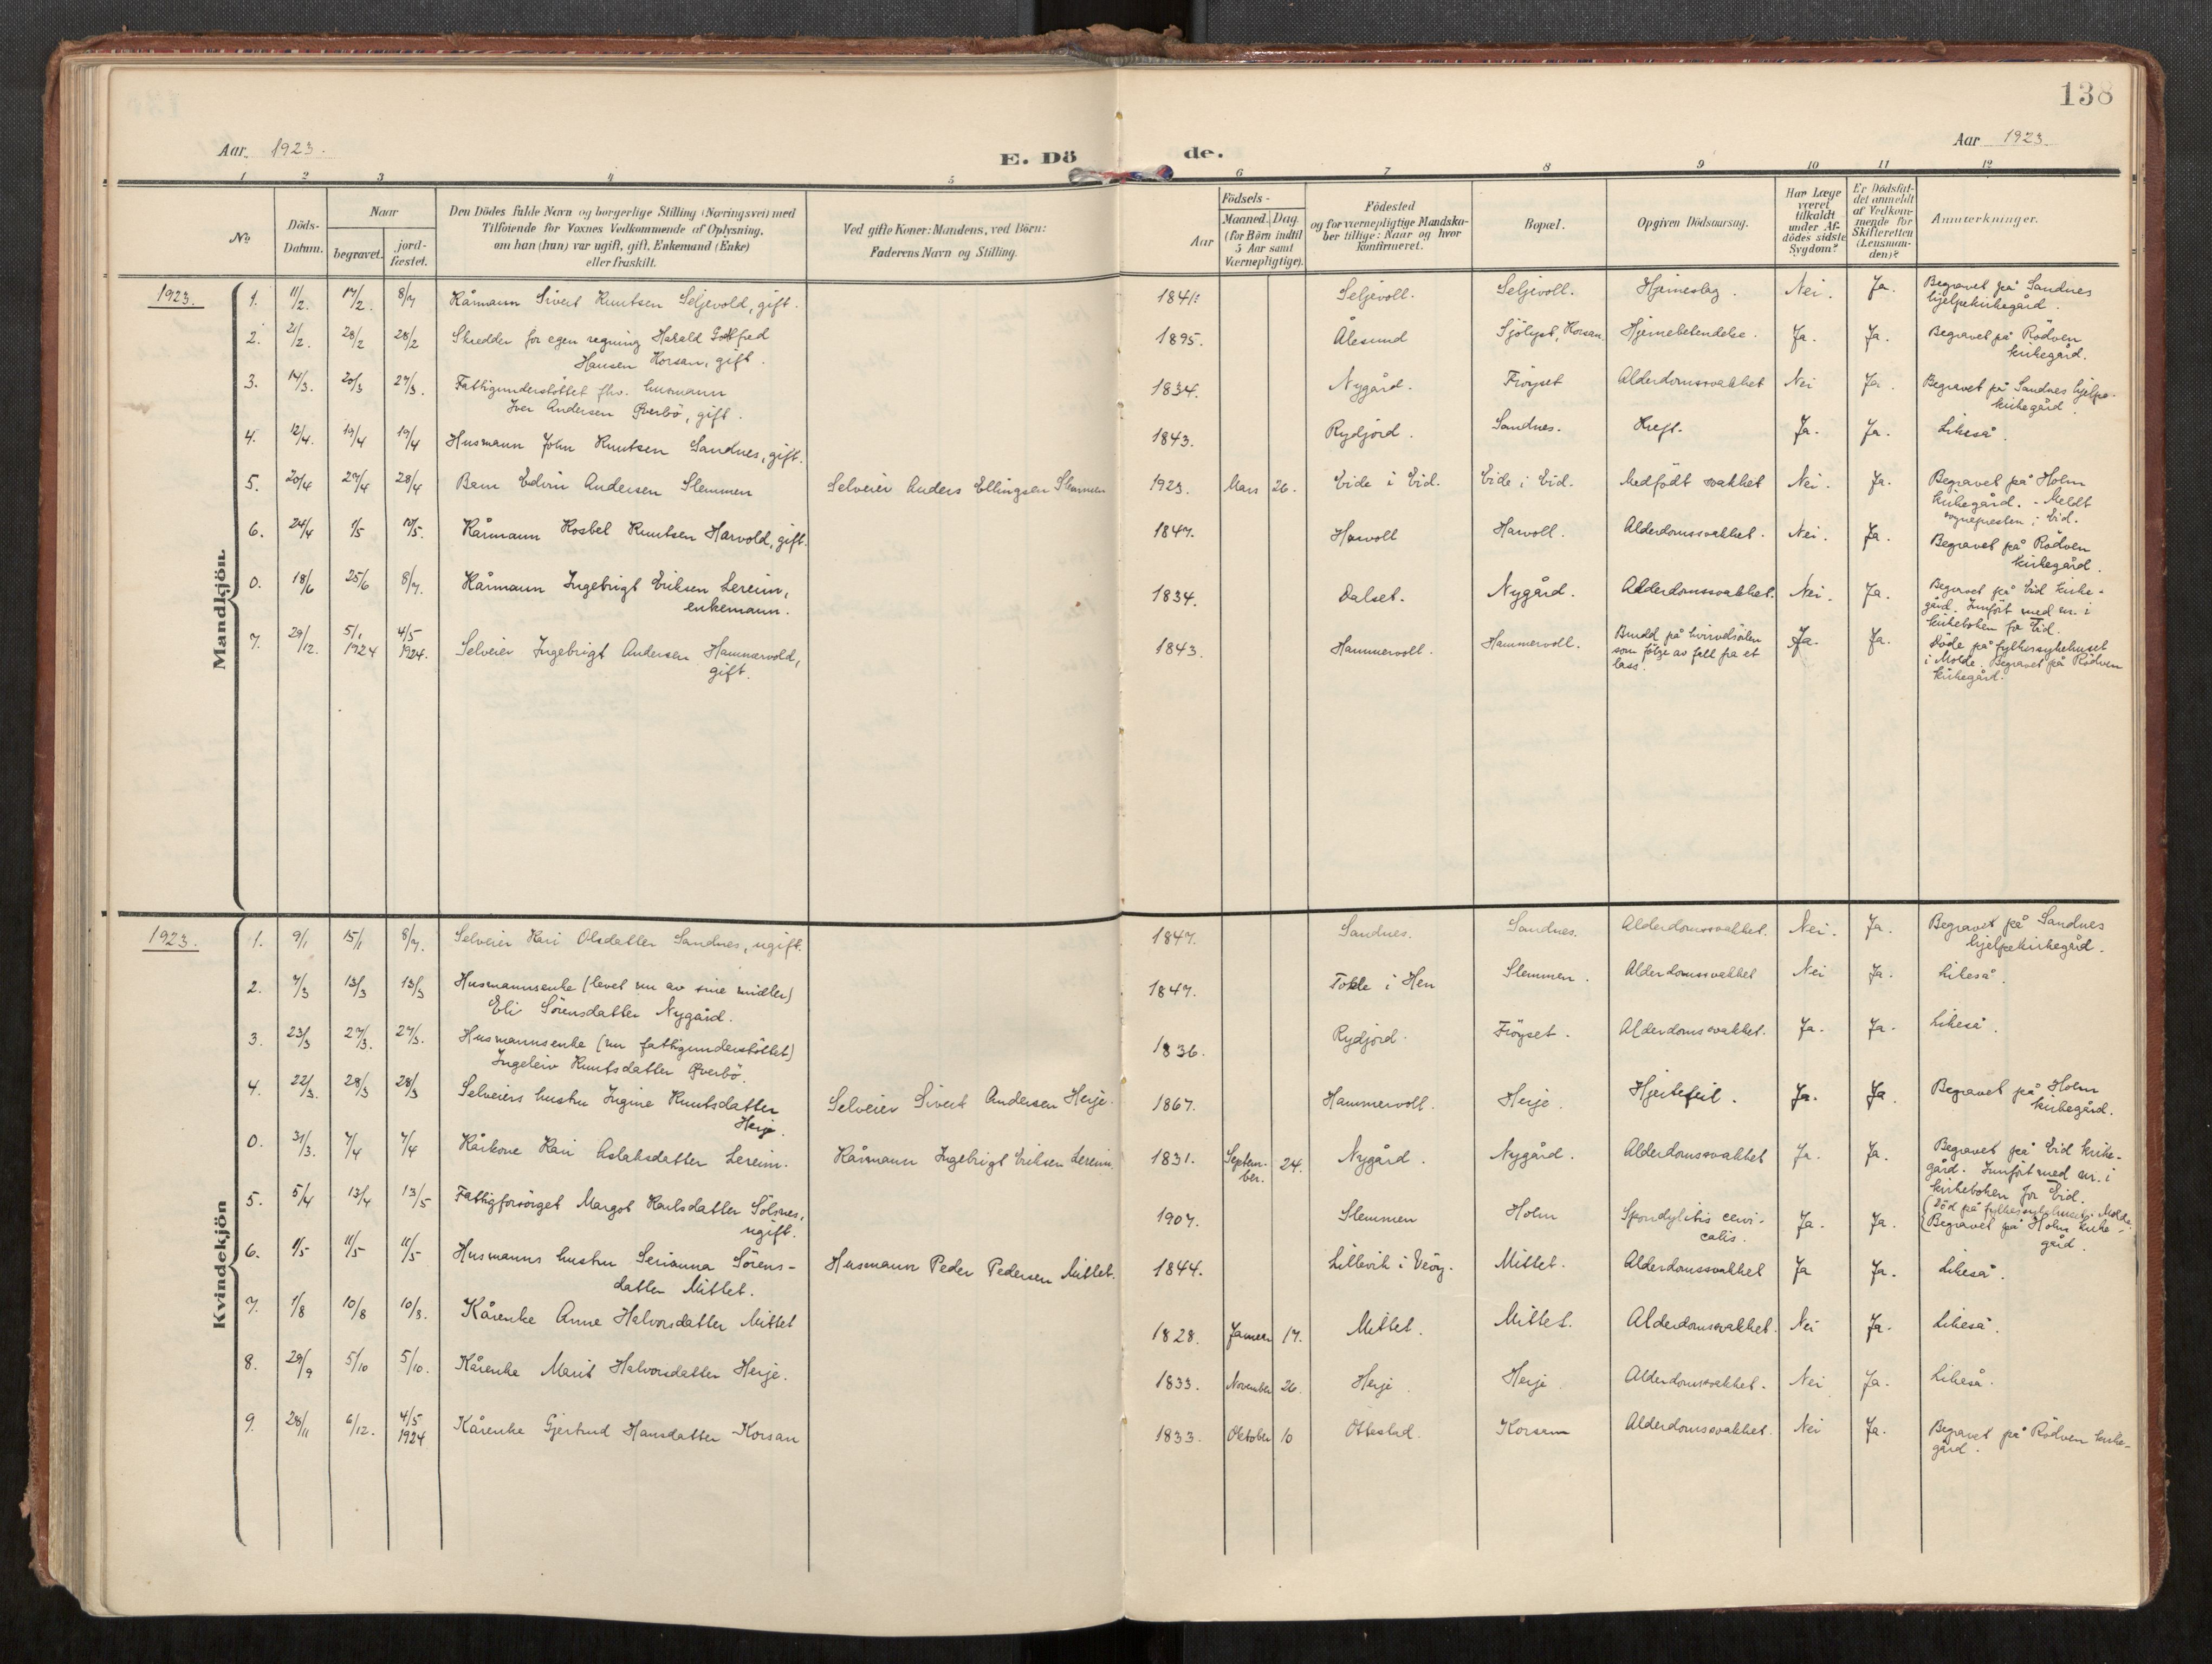 138
Aar 1923.
Aar 1923.
E. Dö de.
1 2 3 4 5 6 7 8 9 10 11 12
No.
Döds-
Datum.
Naar
begravet.
jord-
fæstet.
Den Dödes fulde Navn og borgerlige Stilling (Næringsvei) med
Tilföiende for Voxnes Vedkommende af Oplysning,
om han (hun) var ugift, gift, Enkemand (Enke)
eller fraskilt.
Ved gifte Koner: Mandens, ved Börn:
Faderens Navn og Stilling.
Födsels-
Aar
Maaned.
Dag.
(for Börn indtil
5 Aar samt
Værnepligtige).
Födested
og for værnepligtige Mandska-
ber tillige: Naar og hvor
konfirmeret.
Bopæl.
Opgiven Dödsaarsag.
Har Læge
været
tilkaldt
under Af-
dödes sidste
Sygdom?
Er Dödsfal-
det anmeldt
af Vedkom-
mende for
Skifteretten
(Lensman-
den)?
Anmerkninger.
Mandkjön
1923.
1. 11/2. 17/2. 8/7 Kårmann Sivert Knutsen Seljevold, gift. 1841. Seljevoll. Seljevoll. Hjerneslag. Nei. Ja. Begravet på Sandnes
hjelpekirkegård.
2. 21/2. 28/2 28/2 Skredder for egen regning Harald Gotfred
Hansen Korsan, gift. 1895. Ålesund Sjölyst, Korsan Hjernebetendelse. Ja. Ja. Begravet på Rödven
kirkegård.
3. 14/3. 20/3 27/3. Fattigunderstöttet fhv. husmann
Iver Andersen Överbö, gift. 1834. Nygård. Fröyset Alderdomssvakhet Nei Ja. Begravet på Sandnes hjelpe-
kirkegård.
4. 12/4. 19/4 19/4 Husmann John Knutsen Sandnes, gift. 1843. Rydjord. Sandnes. Kreft. Ja. Ja. Likeså.
5. 20/4 27/4 28/4 Barn Edvin Andersen Slemmen Selveier Anders Ellingsen Slemmen 1923. Mars 26. Eide i Eid. Eide i Eid. Medfödt svakhet Nei. Ja. Begravet på Holm
kirkegård. - Meldt
sognepresten i Eid.
6. 24/4 1/5 10/5. Kårmann Kosbel Knutsen Harvold, gift. 1847. Harvoll Harvoll. Alderdomssvakhet. Nei. Ja. Begravet på Rödven
kirkegård.
0. 18/6 25/6 8/7. Kårmann Ingebrigt Eriksen Lereim,
enkemann. 1834. Dalset. Nygård. Alderdomssvakhet. Nei. Ja. Begravet på Eid kirke-
gård. Innfört med nr. i
kirkeboken for Eid.
7. 29/12. 5/1 1924 4/5 1924. Selveier Ingebrigt Andersen Hammervold,
gift. 1843. Hammervoll. Hammervoll. Brudd på hvirvelsöilen
som fölge av fall fra et
lass. Ja. Ja. Döde på fylkessykehuset
i Molde. Begravet på Rödven
kirkegård.
Kvindekjön
1923.
1. 9/1 15/1 8/7. Selveier Kari Olsdatter Sandnes, ugift. 1847. Sandnes. Sandnes. Alderdomssvakhet. Nei. Ja. Begravet på Sandnes
hjelpekirkegård.
2. 7/3 13/3 13/3 Husmannsenke (levet nu av sine midler)
Eli Sörensdatter Nygård. 1847. Tokle i Hen Slemmen. Alderdomssvakhet Nei Ja. Likeså.
3. 23/3 27/3. 27/3. Husmannsenke (nu fattigunderstöttet)
Ingeleiv Knutsdatter Överbö. 1836. Rydjord. Fröyset. Alderdomssvakhet. Ja. Ja. Likeså.
4. 22/3. 28/3 28/3 Selveiers hustru Ingine Knutsdatter
Herje. Selveier Sivert Andersen Herje. 1867. Hammervoll. Herje. Hjertefeil. Ja. Ja. Begravet på Holm
kirkegård.
0. 31/3. 7/4 7/4 Kårkone Kari Aslaksdatter Lereim. Kårmann Ingebrigt Eriksen Lereim. 1831. Septem-
ber. 24. Nygård. Nygård. Alderdomssvakhet Ja. Ja. Begravet på Eid kirke-
gård. Innfört med nr. i
kirkeboken for Eid.
5. 5/4 13/4 13/5 Fattigforsörget Margot Karlsdatter Sölsnes,
ugift. 1907. Slemmen Holm Spondylitis cervi-
calis. Ja. Ja. Död på fylkessykehuset i Molde.
Begravet på Holm kirke-
gård.
6. 1/5 11/5 11/5 Husmanns hustru Serianna Sörens-
datter Mittet. Husmann Peder Pedersen Mittet. 1844. Lillevik i Veöy. Mittet. Alderdomssvakhet Ja Ja. Likeså.
7. 1/8 10/8 10/8. Kårenke Anne Halvorsdatter Mittet 1828. Januar 17. Mittet. Mittet. Alderdomssvakhet. Nei Ja. Likeså.
8. 29/9 5/10 5/10. Kårenke Marit Halvorsdatter Herje. 1833. November 26. Herje. Herje. Alderdomssvakhet. Nei Ja. Likeså.
9. 28/11 6/12. 4/5 1924 Kårenke Gjertrud Hansdatter Korsan 1833. Oktober 10 Ottestad. Korsan Alderdomssvakhet. Nei Ja. Begravet på Rödven kirke-
gård.